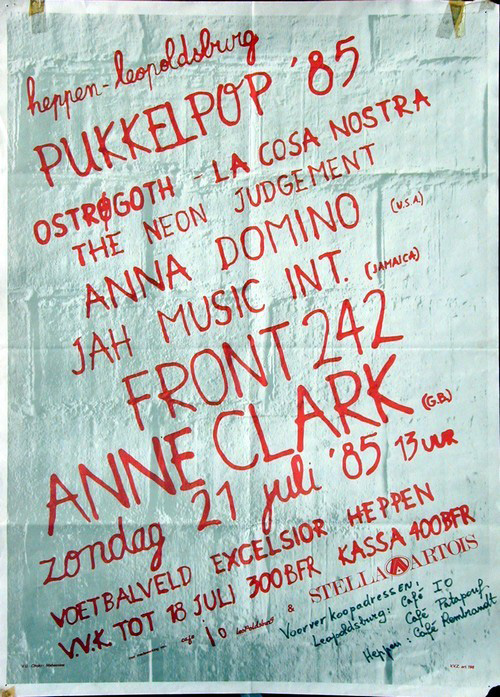 heppen-leopoldsburg
PUKKELPOP '85
OSTRØGOTH - LA COSA NOSTRA
THE NEON JUDGEMENT
ANNA DOMINO (U.S.A.)
JAH MUSIC INT. (JAMAICA)
FRONT 242
ANNE CLARK (G.B.)
zondag 21 juli '85 13 UUR
VOETBALVELD EXCELSIOR HEPPEN
V.V.K. TOT 18 JULI 300BFR KASSA 400BFR
café i o leopoldsburg & STELLA ARTOIS
Voorverkoopadressen:
Leopoldsburg: Café IO
Café Patapouf
Heppen: Café Rembrandt